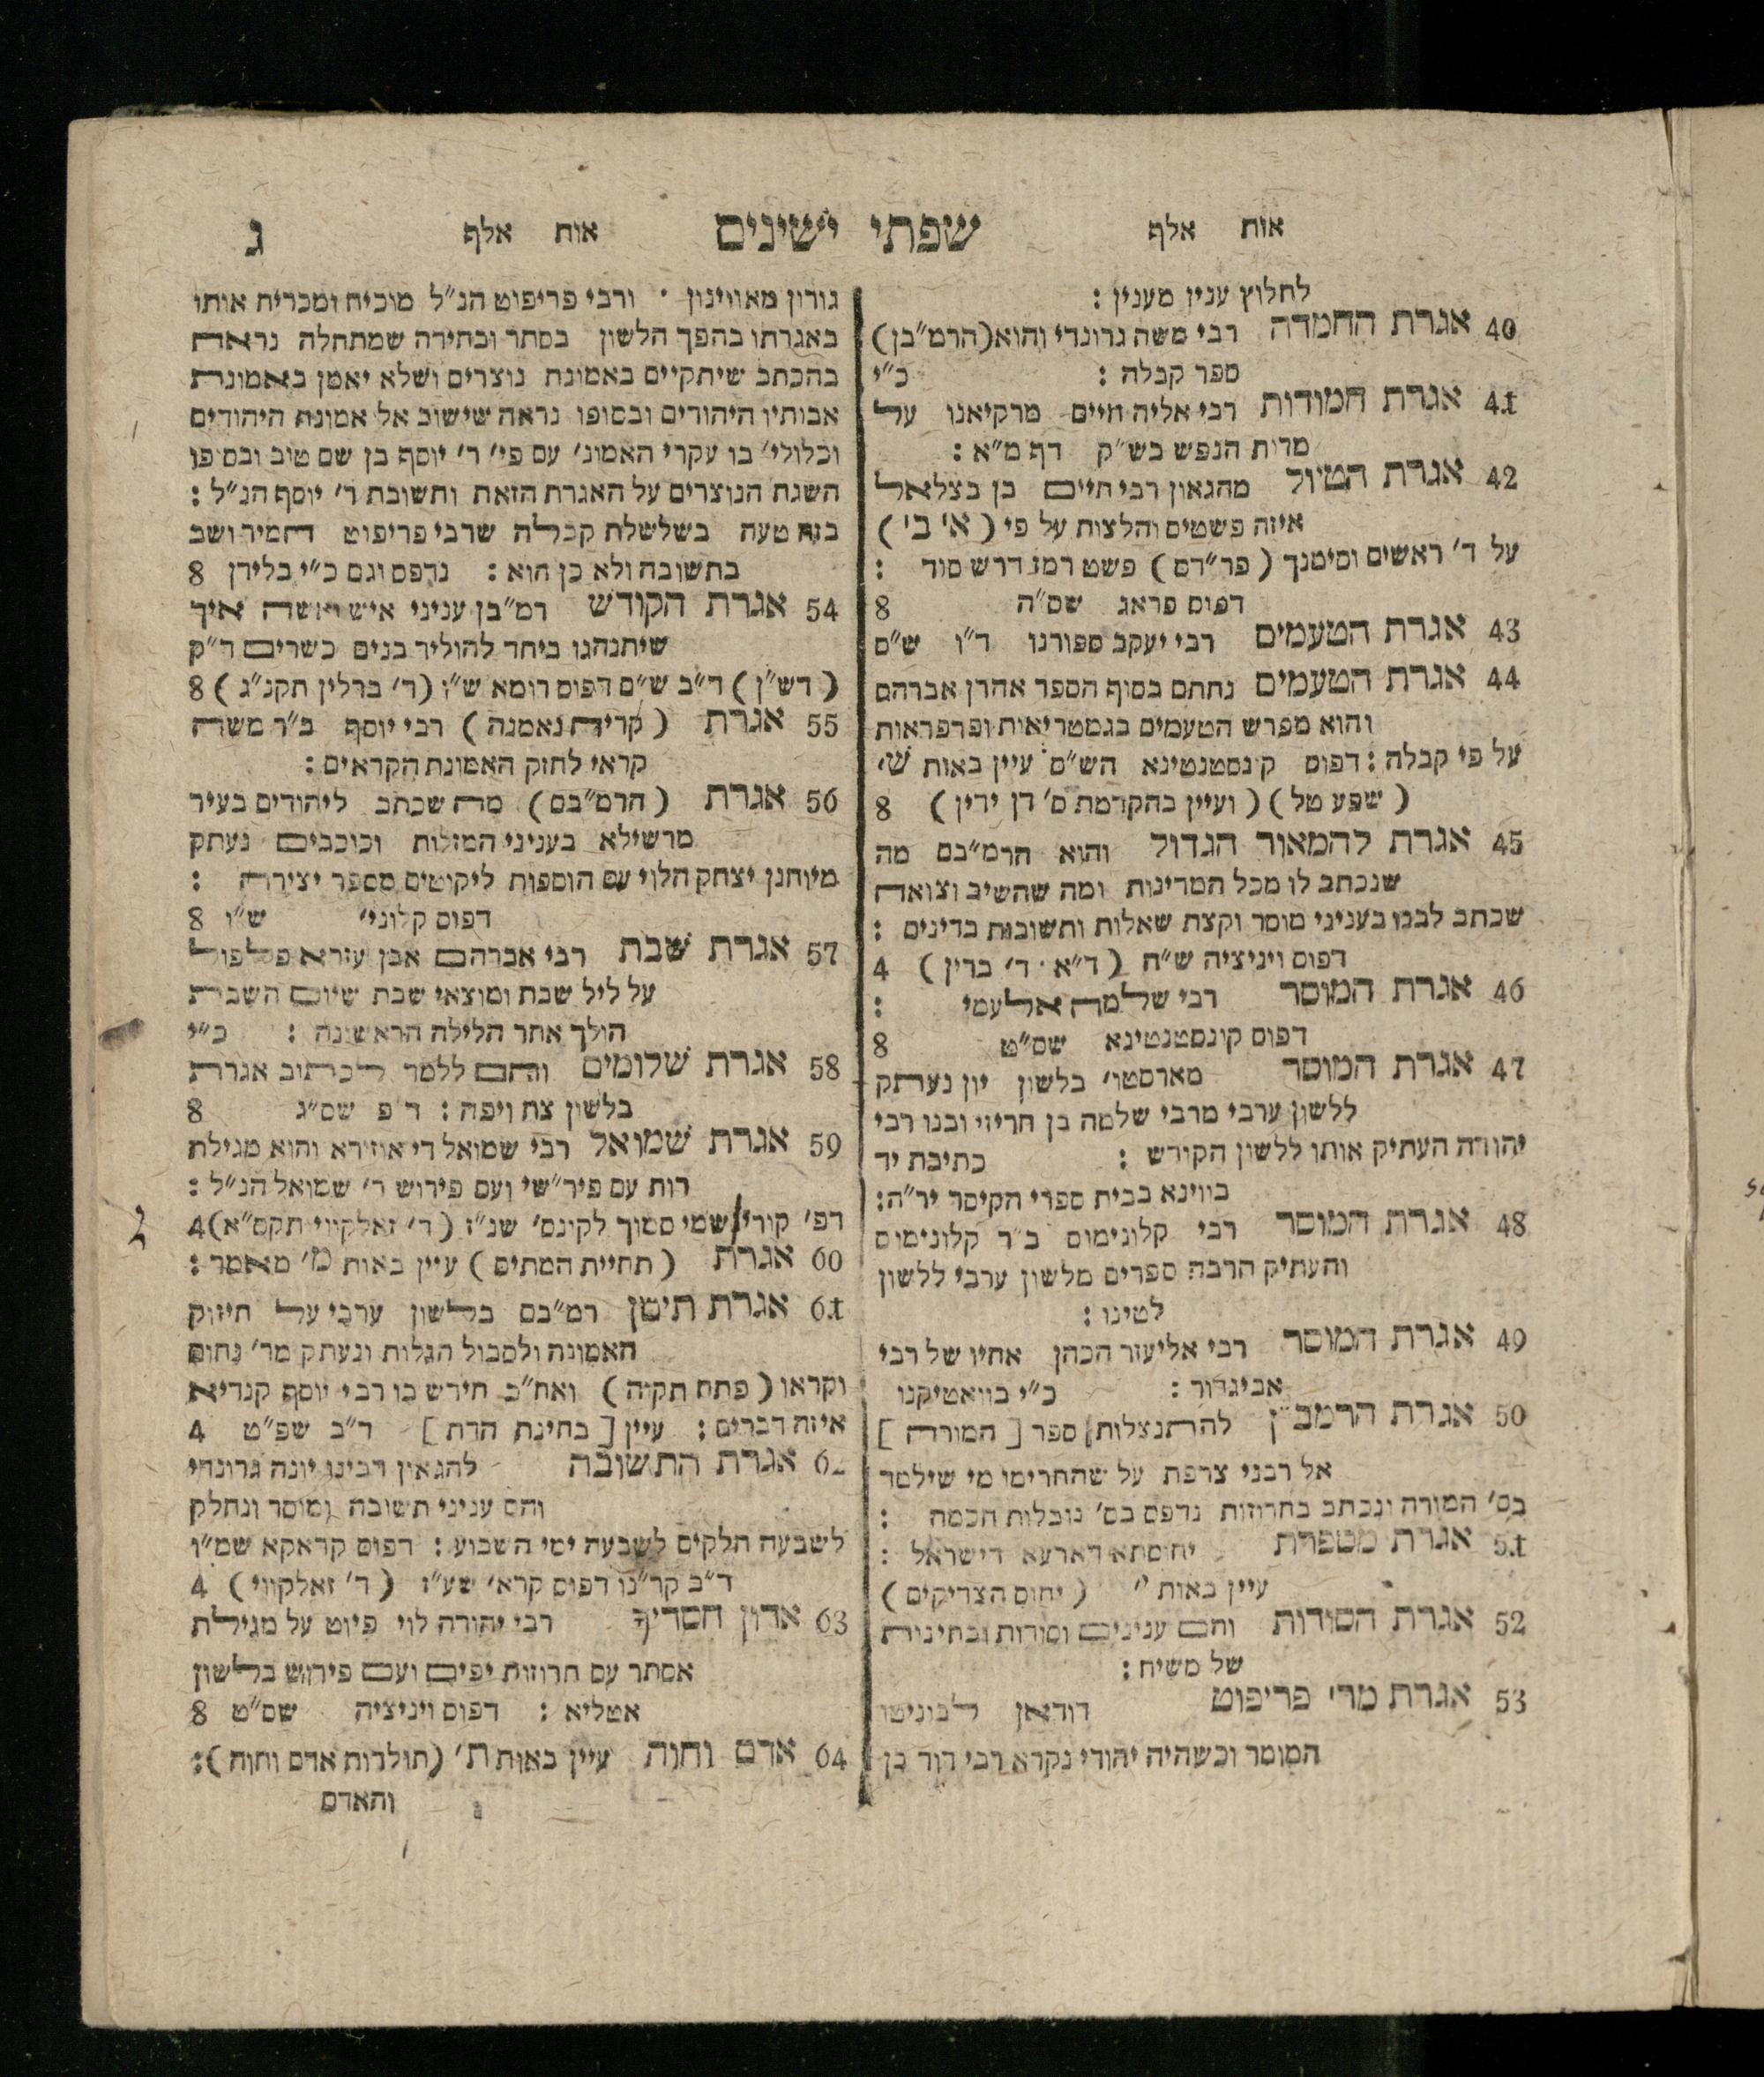 אות אלף שפתי ישינים אות אלף ג
לחלוץ ענין מענין :
40 אגרת החמדה רבי משה גרונדי והוא (הרמ״בן)
ספר קבלה : כ״י
41 אגרת חמודות רבי אליה חיים מרקיאנו על
מדות הנפש בש״ק דף מ״א :
42 אגרת הטיול מהגאון רבי חיים בן בצלאל
איזה פשטים והלצות על פי ( א׳ ב׳ )
על ד׳ ראשים וסיטנך ( פר״דס ) פשט רמז דרש סוד :
דפוס פראג שס״ה 8
43 אגרת הטעמים רבי יעקב ספורנו ד״ו ש״ס
44 אגרת הטעמים נחתם בסוף הספר אהרן אברהם
והוא מפרש הטעמים בגמטריאות ופרפראות
על פי קבלה : דפוס קונסטנטינא הש״ס עיין באות ש׳
( שפע טל ) ( ועיין בהקדמת ס׳ דן ידין ) 8
45 אגרת להמאור הגדול והוא הרמ״בם מה
שנכתב לו מכל המדינות ומה שהשיב וצואה
שכתב לבנו בעניני מוסר וקצת שאלות ותשובות בדינים :
דפוס ויניציה ש״ח ( ד״א ד׳ ברין ) 4
46 אגרת המוסר רבי שלמה אלעמי :
דפוס קונסטנטינא שס״ט 8
47 אגרת המוסר מארסטו׳ בלשון יון נעתק
ללשון ערבי מרבי שלמה בן חריזי ובנו רבי
יהודה העתיק אותו ללשון הקודש : כתיבת יד
בווינא בבית ספרי הקיסר יר״ה:
48 אגרת המוסר רבי קלונימוס ב״ר קלונימוס
והעתיק הרבה ספרים מלשון ערבי ללשון
לטינו :
49 אגרת המוסר רבי אליעזר הכהן אחיו של רבי
אביגדור : כ״י בוואטיקנו
50 אגרת הרמב״ן להתנצלות ספר [ המורה ]
אל רבני צרפת על שהחרימו מי שילמד
בס׳ המורה ונכתב בחרוזות נדפס בס׳ נובלות חכמה :
51 אגרת מספרת יחוסתא דארעא דישראל :
עיין באות י׳ ( יחוס הצדיקים )
52 אגרת הסודות והם ענינים וסודות ובחינות
של משיח :
53 אגרת מר׳ פריפוט דוראן לבוניטו
המומר וכשהיה יהודי נקרא רבי דוד בן
גורון מאווינון · ורבי פריפוט הנ״ל מוכיח ומכריח אותו
באגרתו בהפך הלשון בסתר ובחירה שמתחלה נראה
בהכתב שיתקיים באמונת נוצרים ושלא יאמן באמונת
אבותיו היהודים ובסופו נראה שישוב אל אמונת היהודים
וכלולי׳ בו עקרי האמונ׳ עם פי׳ ר׳ יוסף בן שם טוב ובסופו
השגת הנוצרים על האגרת הזאת ותשובת ר׳ יוסף הנ״ל :
בזה טעה בשלשלת קבלה שרבי פריפוט המיר ושב
בתשובה ולא כן הוא : נדפס וגם כ״י בלידן 8
54 אגרת הקודש רמ״בן עניני איש ואשה איך
שיתנהגו ביחד להוליד בנים כשרים ד״ק
( דש״ן ) ד״ב ש״ם דפוס רומא ש״ו (ד׳ ברלין תקנ״ג ) 8
55 אגרת ( קריה נאמנה ) רבי יוסף ב״ר משה
קראי לחזק האמונת הקראים :
56 אגרת ( הרמ״בם ) מה שכתב ליהודים בעיר
מרשילא בעניני המזלות וכוכבים נעתק
מיוחנן יצחק הלוי עם הוספות ליקוטים מספר יצירה :
דפוס קלוני׳ ש״ו 8
57 אגרת שבת רבי אברהם אבן עזרא פלפול
על ליל שבת ומוצאי שבת שיום השבת
הולך אחר הלילה הראשונה : כ״י
58 אגרת שלומים והם ללמד לכתוב אגרת
בלשון צח ויפה : ד״פ שס״ג 8
59 אגרת שמואל רבי שמואל די אוזידא והוא מגילת
רות עם פיר״שי ועם פירוש ר׳ שמואל הנ״ל :
דפ׳ קורישמי סמוך לקונס׳ שנ״ז ( ד׳ זאלקווי תקס״א) 4
60 אגרת ( תחיית המתים ) עיין באות מ׳ מאמר :
61 אגרת תימן רמ״בם בלשון ערבי על חיזוק
האמונה ולסבול הגלות ונעתק מר׳ נחום
וקראו ( פתח תקוה ) ואח״כ חידש בו רבי יוסף קנדיא
איזה דברים : עיין [ בחינת הדת ] ד״ב שפ״ט 4
62 אגרת התשובה להגאון רבינו יונה גרונדי
והם עניני תשובה ומוסר ונחלק
לשבעה חלקים לשבעה ימי השבוע : דפוס קראקא שמ״ו
ד״ב קר״נו דפוס קרא׳ שע״ז ( ד׳ זאלקווי ) 4
63 אדון חסדיך רבי יהודה לוי פיוט על מגילת
אסתר עם חרוזות יפים ועם פירוש בלשון
אטליא : דפוס ויניציה שס״ט 8
64 אדם וחוה עיין באות ת׳ (תולדות אדם וחוה ):
והאדם